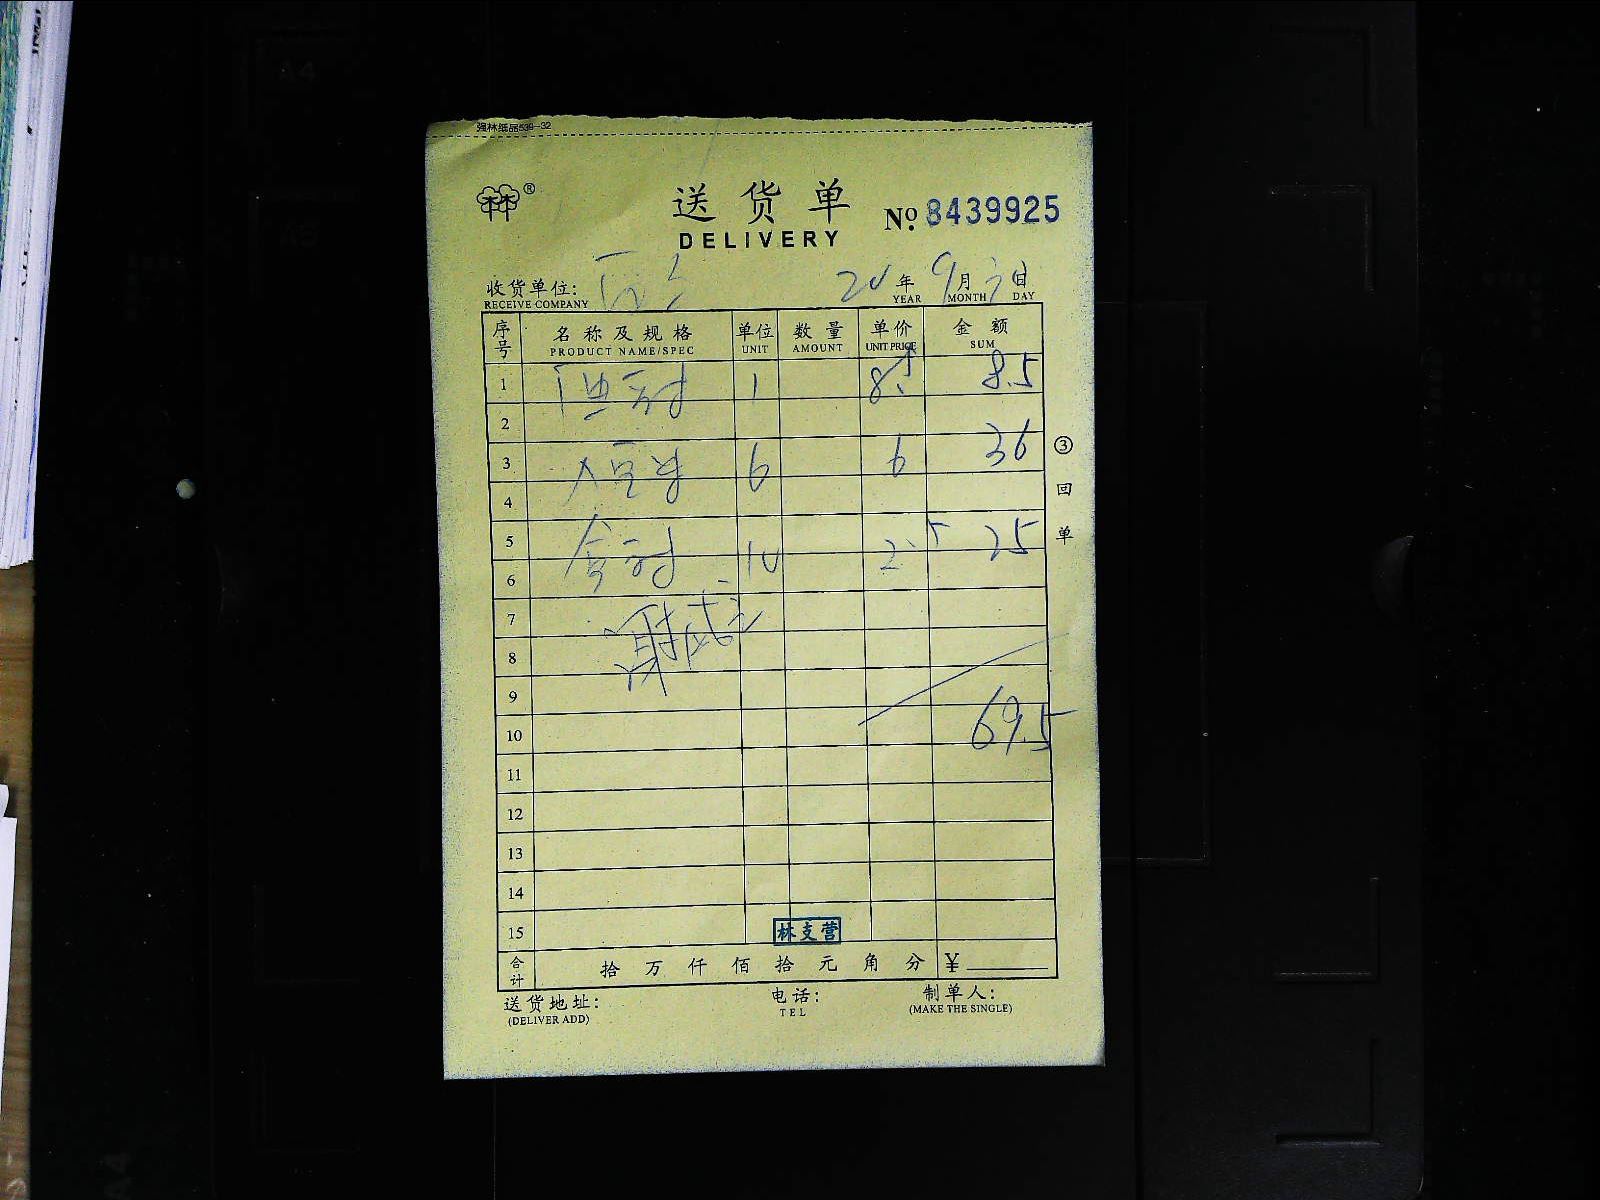 强林纸品539-32
送货单
DELIVERY
№ 8439925
收货单位: 20 年 9 月 日
RECEIVE COMPANY YEAR MONTH DAY
序号 名称及规格 单位 数量 单价 金额
PRODUCT NAME/SPEC UNIT AMOUNT UNIT PRICE SUM
1 1 8.5 8.5
2
3 6 6 36
4
5 10 2.5 25
6
7
8
9
10 69.5
11
12
13
14
15
林支营
合计 拾 万 仟 佰 拾 元 角 分 ¥
送货地址: 电话: 制单人:
(DELIVER ADD) TEL (MAKE THE SINGLE)
③回单
A4